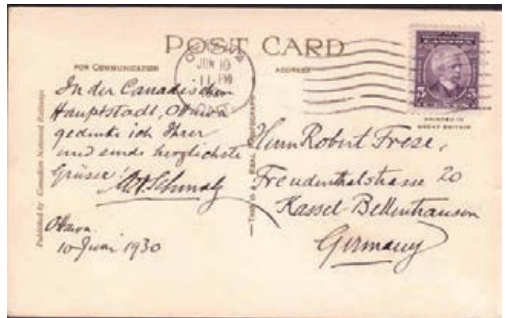 POST CARD
FOR COMMUNICATION
ADDRESS
OTTAWA
JUN 10
11 PM
ONT.
5 5
PRINTED IN
GREAT BRITAIN
Published by Canadian National Railways
THIS IS A REAL PHOTOGRAPH
In der Canadischen
Hauptstadt, Ottawa
gedenke ich Ihrer
und sende herzlichste
Grüsse!
Ottawa.
10 Juni 1930
Herrn Robert Frese,
Freudenthalstrasse 20
Kassel-Bettenhausen
Germany